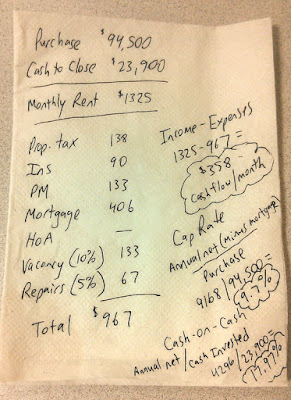 Purchase $94,500
Cash to Close $23,900
Monthly Rent $1325
Prop. tax 138
Ins 90
PM 133
Mortgage 406
HoA —
Vacancy (10%) 133
Repairs (5%) 67
Total $967
Income - Expenses
1325-967 =
$358
Cashflow/month
Cap Rate
Annual net (minus mortgage)
Purchase
9168/94,500 =
9.7%
Cash-on-Cash
Annual net/Cash Invested
4296/23,900 =
17.97%